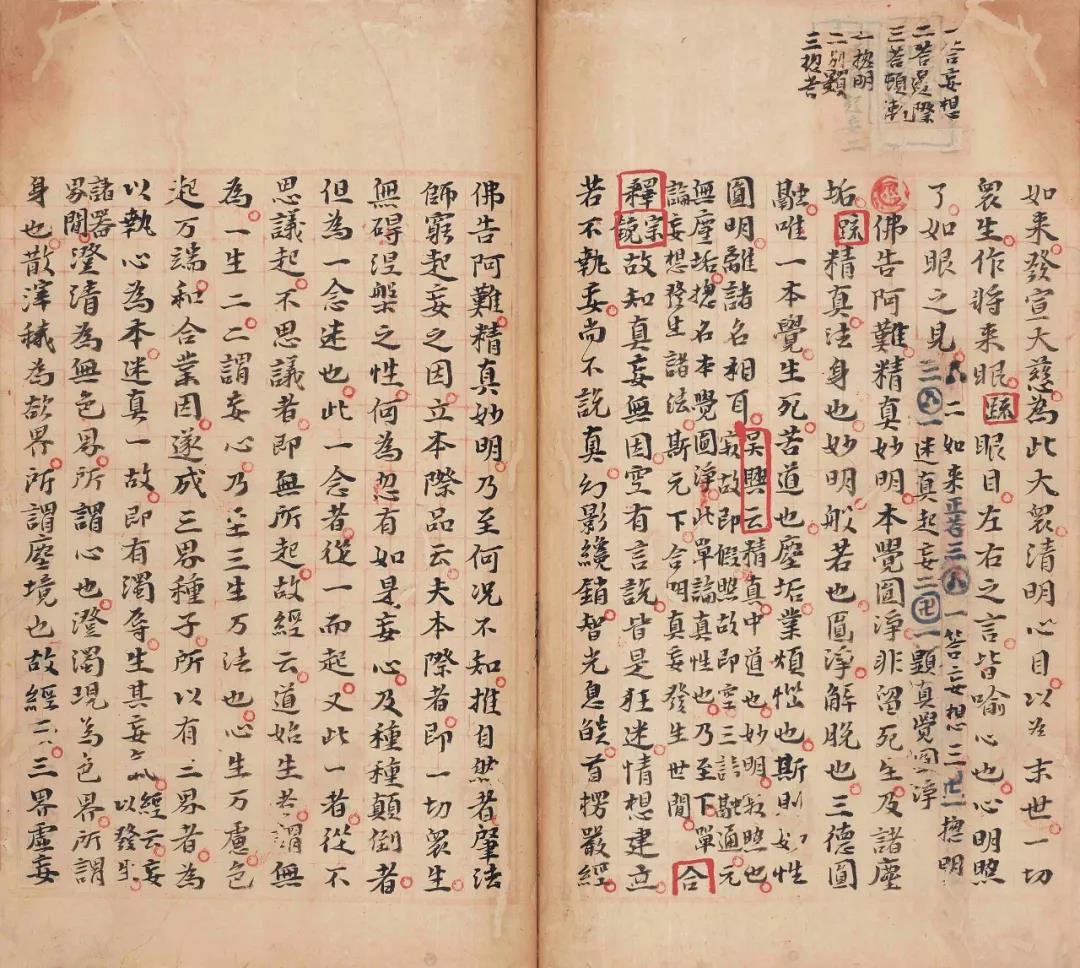 一答妄想
二答是際
三答頓漸
一揔明
二別顯
三揔答
如来發宣大慈為此大衆清明心目以為末世一切
衆生作将来眼疏眼目左右之言皆喻心也心明照
了如眼之見
二如来正答三
一答妄想三
一揔明
三
一迷真起妄二
一顯真覺圓淨
經佛告阿難精真妙明本覺圓淨非留死生及諸塵
垢疏精真法身也妙明般若也圓淨解脱也三德圓
融唯一本覺生死苦道也塵垢業煩惱也斯則妙性
圓明離諸名相耳吳興云精真中道也妙明寂照也
寂故即假照故即空三諦融通元
無塵垢揔名本覺圓淨此單論真性也乃至下單
論妄想發生諸法斯元下合明真妄發生世間合
釋宗
鏡故知真妄無因空有言説皆是狂迷情想建立
若不執妄尚不説真幻影纔銷智光息皓首楞嚴經
佛告阿難精真妙明乃至何况不知推自然者肇法
師窮起妄之因立本際品云夫本際者即一切衆生
無碍涅槃之性何為忽有如是妄心及種種顛倒者
但為一念迷也此一念者從一而起又此一者從不
思議起不思議者即無所起故經云道始生一者謂無
為一生二二謂妄心乃至三生万法也心生万慮色
起万端和合業因遂成三界種子所以有三界者為
以執心為本迷真一故即有濁辱生其妄氣經云妄
以發生
諸器
界間澄清為無色界所謂心也澄濁現為色界所謂
身也散滓穢為欲界所謂塵境也故經云三界虛妄